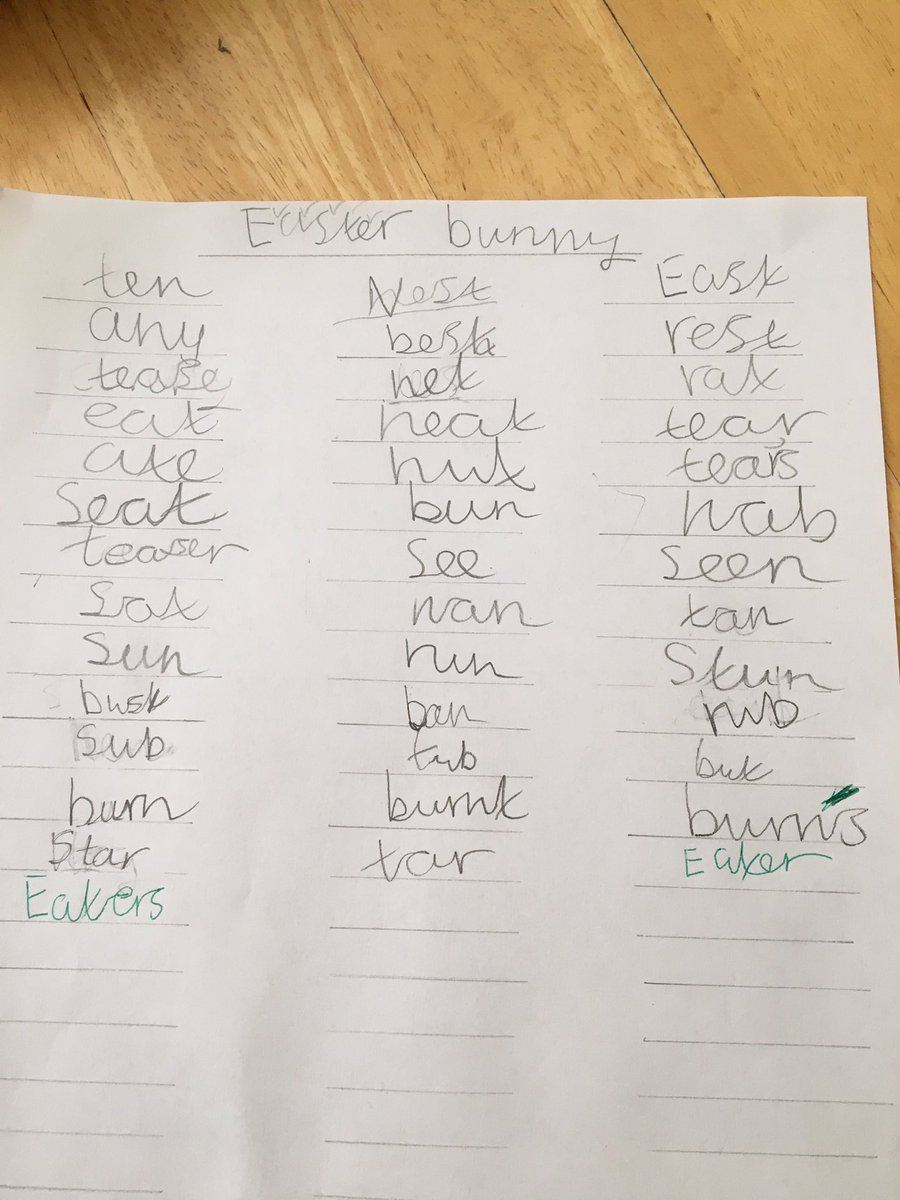 Easter bunny
ten Nest East
any best rest
tease net rat
eat neat tear
ate nut tears
Seat bun nab
teaser See Seen
Sat nan tan
Sun run Stun
bust ban rub
Sub tub but
burn burnt burns
Star tar Eater
Eaters